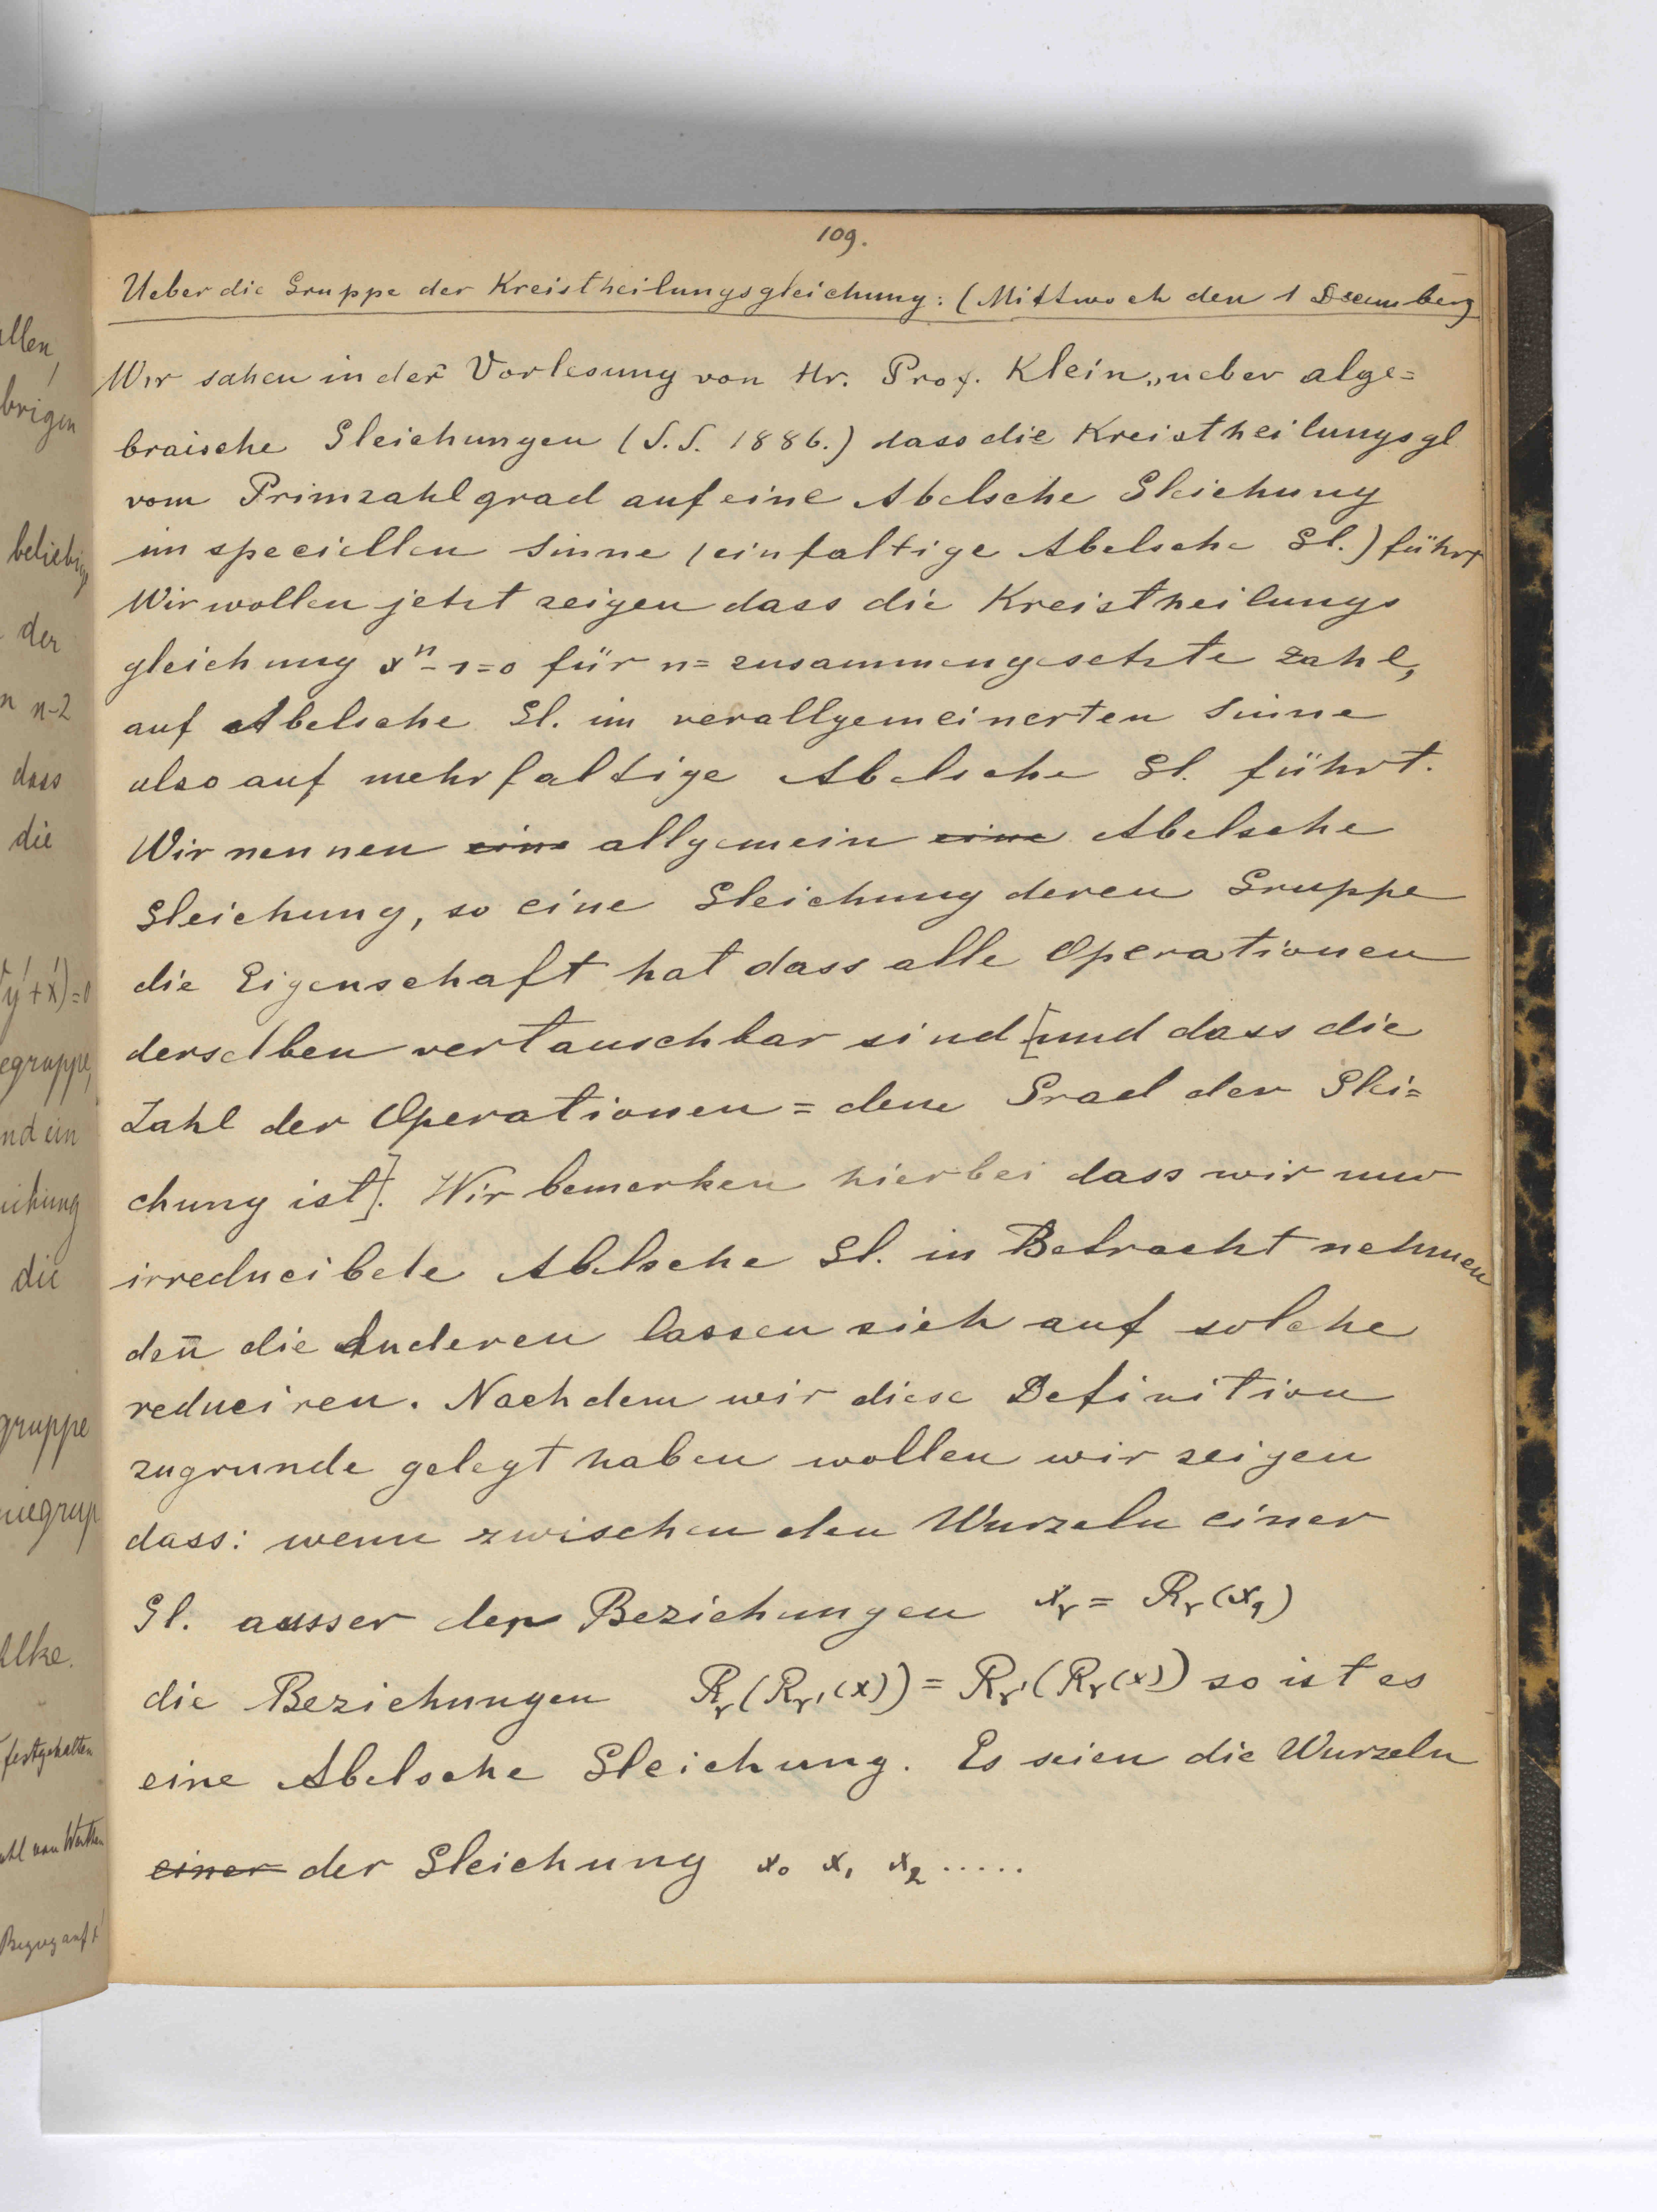 109.
Ueber die Gruppe der Kreistheilungsgleichung: (Mittwoch den 1 December)
Wir sahen in der Vorlesung von Hr. Prof. Klein „ueber alge=
braische Gleichungen (S.S. 1886.) dass die Kreistheilungsgl
vom Primzahlgrad auf eine Abelsche Gleichung
im speciellen Sinne (einfaltige Abelsche Gl.) führt
Wir wollen jetzt zeigen dass die Kreistheilungs
gleichung xⁿ-1=0 für n= zusammengesetzte Zahl,
auf Abelsche Gl. im verallgemeinerten Sinne
also auf mehrfaltige Abelsche Gl. führt.
Wir nennen eine allgemein eine Abelsche
Gleichung, so eine Gleichung deren Gruppe
die Eigenschaft hat dass alle Operationen
derselben vertauschbar sind [und dass die
Zahl der Operationen = dem Grad der Glei=
chung ist]. Wir bemerken hierbei dass wir nur
irreducibele Abelsche Gl. in Betracht nehmen
den̄ die Anderen lassen sich auf solche
reduciren. Nachdem wir diese Definition
zugrunde gelegt haben wollen wir zeigen
dass: wenn zwischen den Wurzeln einer
Gl. ausser den Beziehungen x_r = R_r(x_1)
die Beziehungen R_r(R_r'(x)) = R_r'(R_r(x)) so ist es
eine Abelsche Gleichung. Es seien die Wurzeln
einer der Gleichung x₀ x₁ x₂ .....
allen,
brigen
der
n n-2
dass
die
y'+x')=0
egruppe,
nd ein
die
gruppe
festgehalten